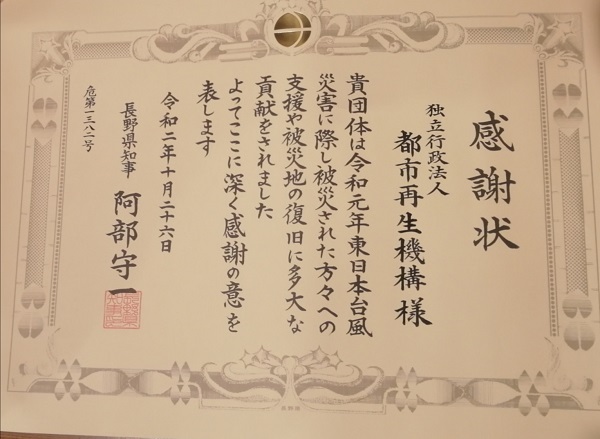 感謝状
独立行政法人
都市再生機構様
貴団体は令和元年東日本台風
災害に際し被災された方々への
支援や被災地の復旧に多大な
貢献をされました
よってここに深く感謝の意を
表します
令和二年十月二十六日
長野県知事 阿部守一
危第一三八二号